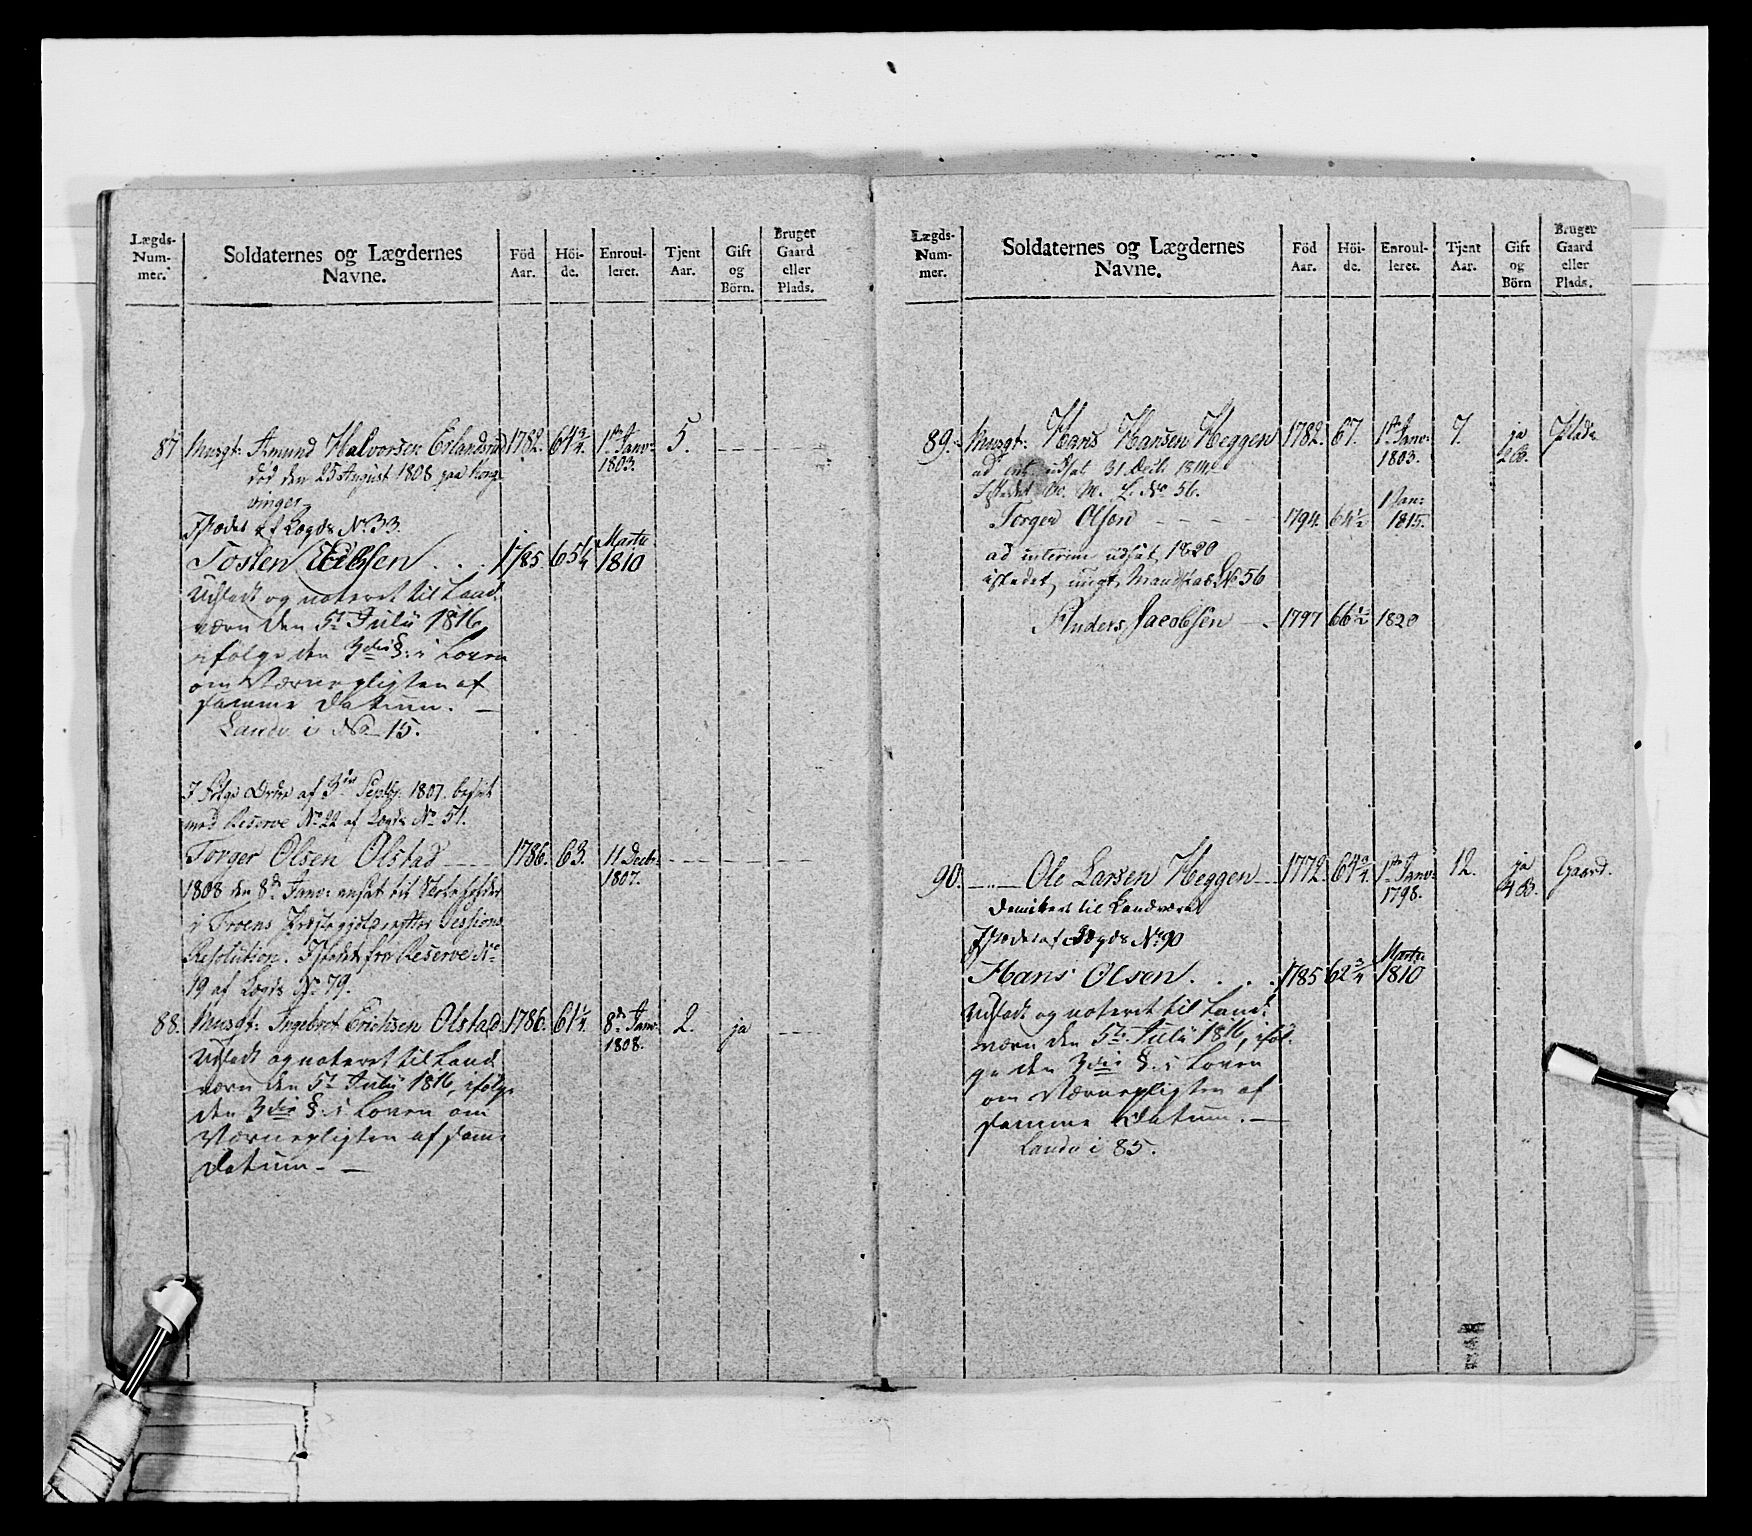 Lægds-Num-mer. Soldaternes og Lægdernes Navne. Föd Aar. Höi-de. Enroul-leret. Tjent Aar. Gift og Börn. Bruger Gaard eller Plads.
87 Musqt: Amund Halvorsen Erlandsrud 1782. 64 3/4. 1ste Janv: 1803. 5.
død den 25 August 1808 paa Kongs
vinger
Istædet af Lægds No 33.
Tosten . . . 1785 65 1/4 Martii 1810
Udslædt og noteret til Land
værn den 5te Julii 1816
ifølge den 3die §: i Loven
om Værnepligten af
samme Datum. —
Landv i No 15.
I Følge Ordre af 3die Septbr. 1807. besat
med Reserve No 22 af Lægds No 51.
Torger Olsen Olstad 1786. 63. 11 Decbr: 1807.
1808 den 8de Janv: ansat til
i Troens Præstegjeld efter Sessions
Resolution. Istedet for Reserve No
19 af Lægds No 79.
88. Musqt: Ingebret Erichsen Olstad 1786. 61 1/4. 8de Janv: 1808. 2. ja
Udslædt og noteret til Land
værn den 5te Julii 1816, ifølge
den 3die §: i Loven om
Værnepligten af samme
Datum. —
Lægds-Num-mer. Soldaternes og Lægdernes Navne. Föd Aar. Höi-de. Enroul-leret. Tjent Aar. Gift og Börn Bruger Gaard eller Plads.
89. Musqt: Hans Hansen Heggen 1782. 67. 1ste Janv: 1803. 7. ja 2 B. Plads
ad int. udsat 31 Decb. 1814
Istedet M. L. No 56.
Torger Olsen 1794. 64 1/2 1 Jan: 1815.
ad interim udsat 1820
istedet ungt Mandskab No 56
Anders Jacobsen 1797 66 1/2 1820
90. Ole Larsen Heggen 1772. 64 3/4. 1ste Janv: 1798. 12. ja 4 B. Gaard.
til Landværnet
Istædet af Lægds No 90
Hans Olsen . . . . 1785 62 3/4 Martii 1810
Udslædt og noteret til Land
værn den 5te Julii 1816, iføl-
ge den 3die §: i Loven
om Værnepligten af
samme Datum. —
Landv i 85.